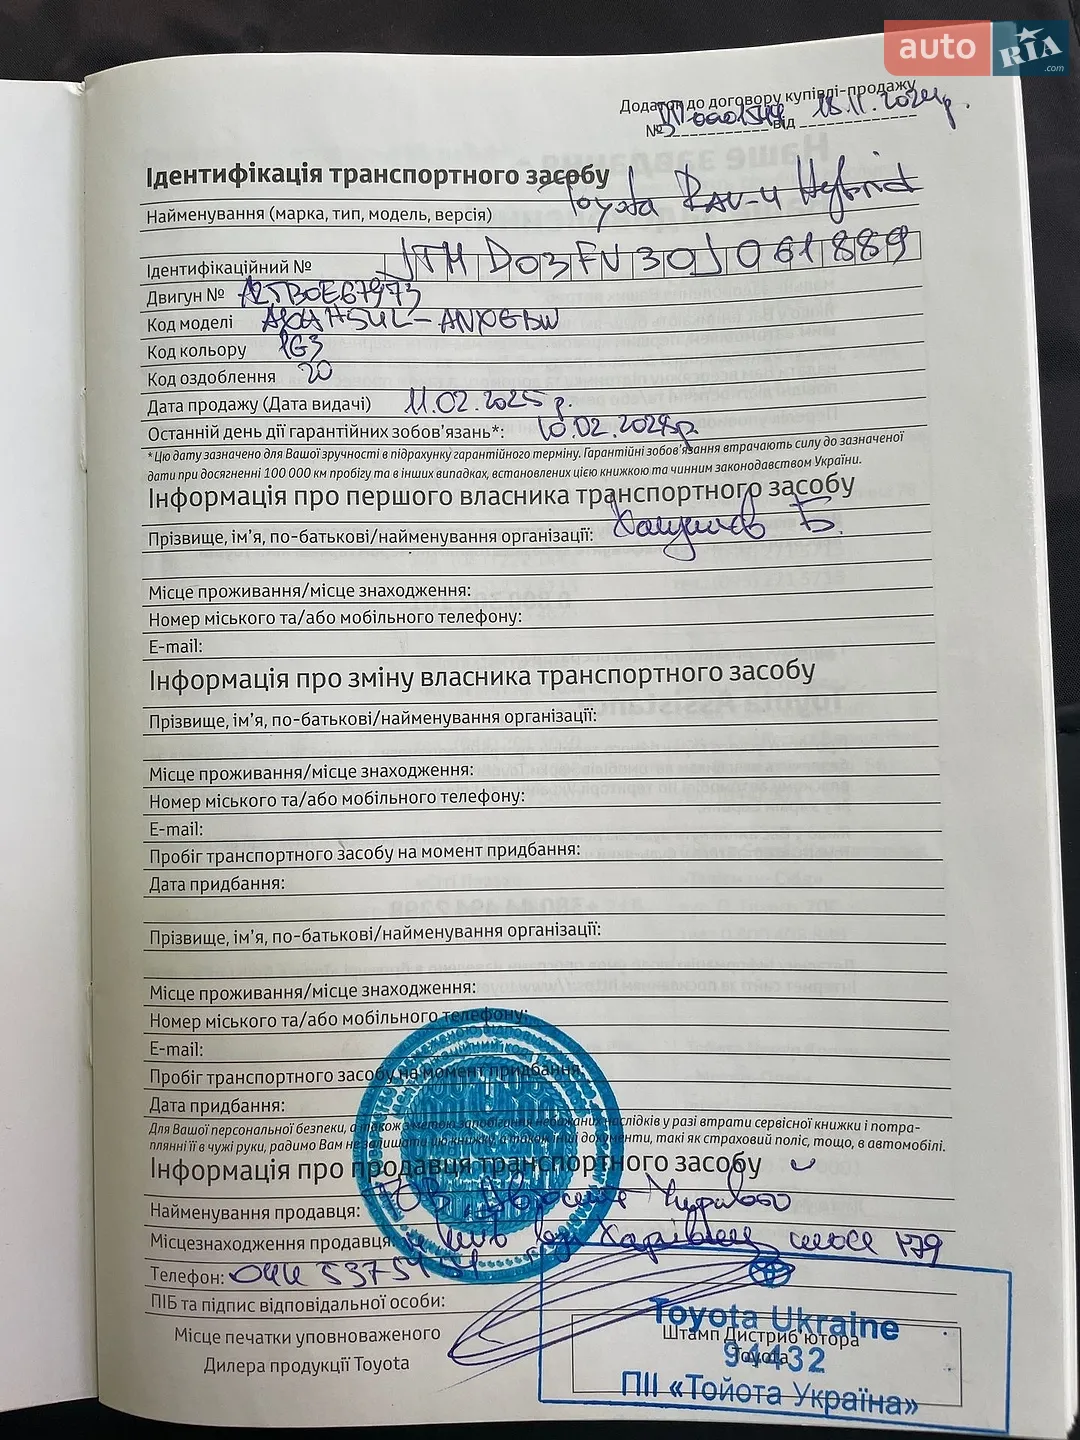 auto RIA.com
Додаток до договору купівлі-продажу
№ від 18.11.2024р.
Ідентифікація транспортного засобу
Найменування (марка, тип, модель, версія) Toyota RAV-4 Hybrid
Ідентифікаційний № JTMD03FV30J061889
Двигун № A25B0E67973
Код моделі AXAH54L-ANXGBW
Код кольору 1G3
Код оздоблення 20
Дата продажу (Дата видачі) 11.02.2025р.
Останній день дії гарантійних зобов'язань*: 10.02.2028р.
*Цю дату зазначено для Вашої зручності в підрахунку гарантійного терміну. Гарантійні зобов'язання втрачають силу до зазначеної
дати при досягненні 100 000 км пробігу та в інших випадках, встановлених цією книжкою та чинним законодавством України.
Інформація про першого власника транспортного засобу
Прізвище, ім'я, по-батькові/найменування організації: Б.
Місце проживання/місце знаходження:
Номер міського та/або мобільного телефону:
E-mail:
Інформація про зміну власника транспортного засобу
Прізвище, ім'я, по-батькові/найменування організації:
Місце проживання/місце знаходження:
Номер міського та/або мобільного телефону:
E-mail:
Пробіг транспортного засобу на момент придбання:
Дата придбання:
Прізвище, ім'я, по-батькові/найменування організації:
Місце проживання/місце знаходження:
Номер міського та/або мобільного телефону:
E-mail:
Пробіг транспортного засобу на момент придбання:
Дата придбання:
Для Вашої персональної безпеки, а також з метою запобігання небажаних наслідків у разі втрати сервісної книжки і потра-
плянні її в чужі руки, радимо Вам не залишати цю книжку, а також інші документи, такі як страховий поліс, тощо, в автомобілі.
Інформація про продавця транспортного засобу
Найменування продавця: ТОВ
Місцезнаходження продавця: м. Київ вул Харківське шосе 179
Телефон: 044
ПІБ та підпис відповідальної особи:
Місце печатки уповноваженого
Дилера продукції Toyota
Штамп Дистриб'ютора
Toyota
Toyota Ukraine
94432
ПІІ «Тойота Україна»